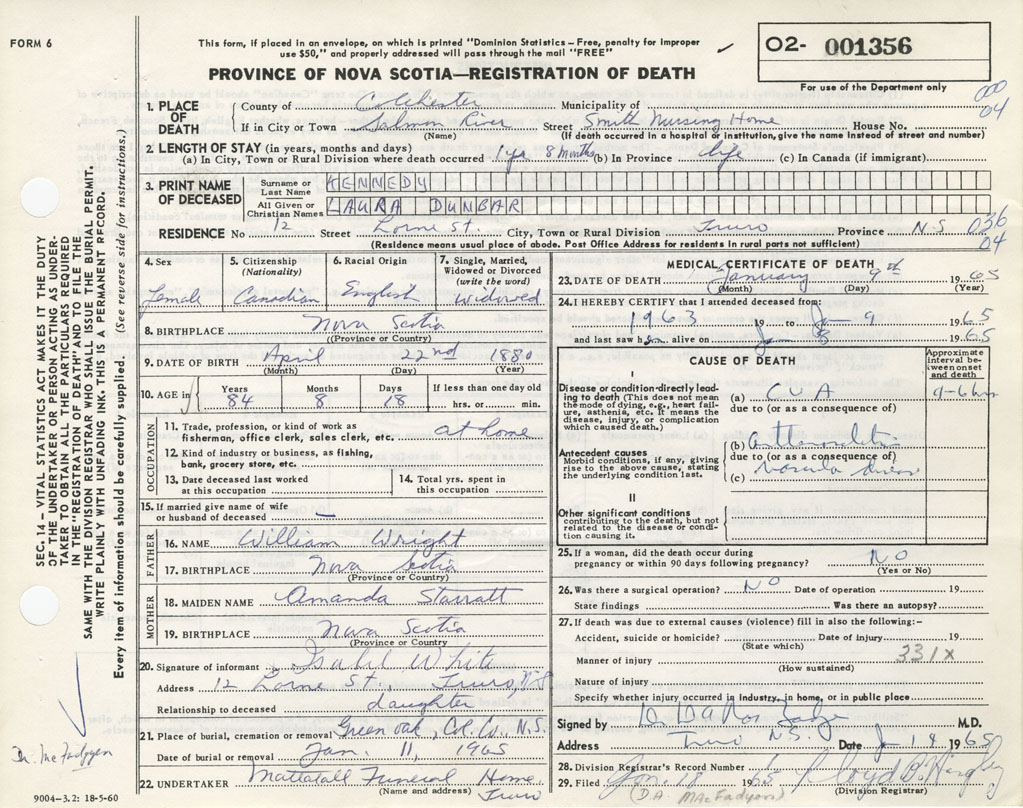 FORM 6
This form, if placed in an envelope, on which is printed "Dominion Statistics – Free, penalty for improper
use $50," and properly addressed will pass through the mail "FREE"
O2- 001356
PROVINCE OF NOVA SCOTIA—REGISTRATION OF DEATH
For use of the Department only
000
04
1. PLACE OF DEATH
County of Colchester Municipality of
If in City or Town Salmon River Street Smith Nursing Home House No.
(Name) (If death occurred in a hospital or institution, give the name instead of street and number)
2. LENGTH OF STAY (in years, months and days)
(a) In City, Town or Rural Division where death occurred 1 yr 8 months (b) In Province life (c) In Canada (if immigrant)
3. PRINT NAME OF DECEASED
Surname or Last Name KENNEDY
All Given or Christian Names LAURA DUNBAR
RESIDENCE No 12 Street Lorne St. City, Town or Rural Division Truro Province N.S
(Residence means usual place of abode. Post Office Address for residents in rural parts not sufficient)
036
04
4. Sex
Female
5. Citizenship (Nationality)
Canadian
6. Racial Origin
English
7. Single, Married, Widowed or Divorced (write the word)
widowed
8. BIRTHPLACE Nova Scotia
(Province or Country)
9. DATE OF BIRTH April 22nd 1880
(Month) (Day) (Year)
10. AGE in
Years 84
Months 8
Days 18
If less than one day old
hrs. or min.
OCCUPATION
11. Trade, profession, or kind of work as
fisherman, office clerk, sales clerk, etc. at home
12. Kind of industry or business, as fishing,
bank, grocery store, etc.
13. Date deceased last worked
at this occupation
14. Total yrs. spent in
this occupation
15. If married give name of wife
or husband of deceased —
FATHER
16. NAME William Wright
17. BIRTHPLACE Nova Scotia
(Province or Country)
MOTHER
18. MAIDEN NAME Amanda Starratt
19. BIRTHPLACE Nova Scotia
(Province or Country)
20. Signature of informant Isabel White
Address 12 Lorne St., Truro, N.S
Relationship to deceased daughter
21. Place of burial, cremation or removal Green oak, Col. Co., N.S.
Date of burial or removal Jan. 11, 1965
22. UNDERTAKER Mattatall Funeral Home
(Name and address) Truro
MEDICAL CERTIFICATE OF DEATH
23. DATE OF DEATH January 9th 1965
(Month) (Day) (Year)
24. I HEREBY CERTIFY that I attended deceased from:
1963 19 to Jan 9 1965
and last saw h alive on Jan 8 1965
CAUSE OF DEATH
Approximate interval between onset and death
I
Disease or condition directly leading to death (This does not mean the mode of dying, e.g., heart failure, asthenia, etc. It means the disease, injury, or complication which caused death.)
(a) CVA
due to (or as a consequence of)
Antecedent causes
Morbid conditions, if any, giving rise to the above cause, stating the underlying condition last.
(b)
due to (or as a consequence of)
(c)
II
Other significant conditions
contributing to the death, but not related to the disease or condition causing it.
25. If a woman, did the death occur during
pregnancy or within 90 days following pregnancy? No
(Yes or No)
26. Was there a surgical operation? No Date of operation 19
State findings Was there an autopsy?
27. If death was due to external causes (violence) fill in also the following:-
Accident, suicide or homicide? Date of injury 19
(State which)
331X
Manner of injury
(How sustained)
Nature of injury
Specify whether injury occurred in industry, in home, or in public place
Signed by M.D.
Address Truro N.S. Date Jan 14 1965
28. Division Registrar's Record Number 1
29. Filed Jan. 18 1965
(Division Registrar)
(D.A. MacFadyen)
SEC. 14 – VITAL STATISTICS ACT MAKES IT THE DUTY
OF THE UNDERTAKER OR PERSON ACTING AS UNDER-
TAKER TO OBTAIN ALL THE PARTICULARS REQUIRED
IN THE "REGISTRATION OF DEATH" AND TO FILE THE
SAME WITH THE DIVISION REGISTRAR WHO SHALL ISSUE THE BURIAL PERMIT.
WRITE PLAINLY WITH UNFADING INK. THIS IS A PERMANENT RECORD.
Every item of information should be carefully supplied. (See reverse side for instructions.)
Dr. McFadyen
9004-3.2: 18-5-60